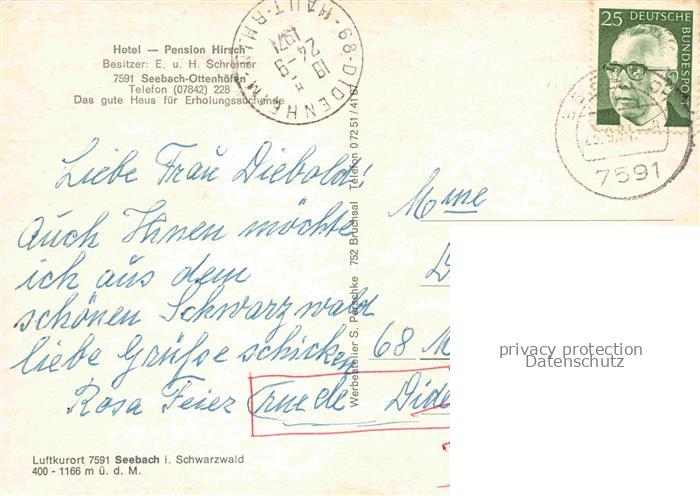 Hotel — Pension Hirsch
Besitzer: E. u. H. Schreiner
7591 Seebach-Ottenhöfen
Telefon (07842) 228
Das gute Haus für Erholungssuchende
68-DIDENHEIM
HAUT-RHIN
19 H
24-9
1971
25 DEUTSCHE
BUNDESPOST
7591
Liebe Frau Diebold!
Auch Ihnen möchte
ich aus dem
schönen Schwarzwald
liebe Grüße schicken
Rosa Feier
Mme
D
68 M
rue de Dide
Werbeatelier S. Patschke 752 Bruchsal Telefon 07251/4167
privacy protection
Datenschutz
Luftkurort 7591 Seebach i. Schwarzwald
400 - 1166 m ü. d. M.